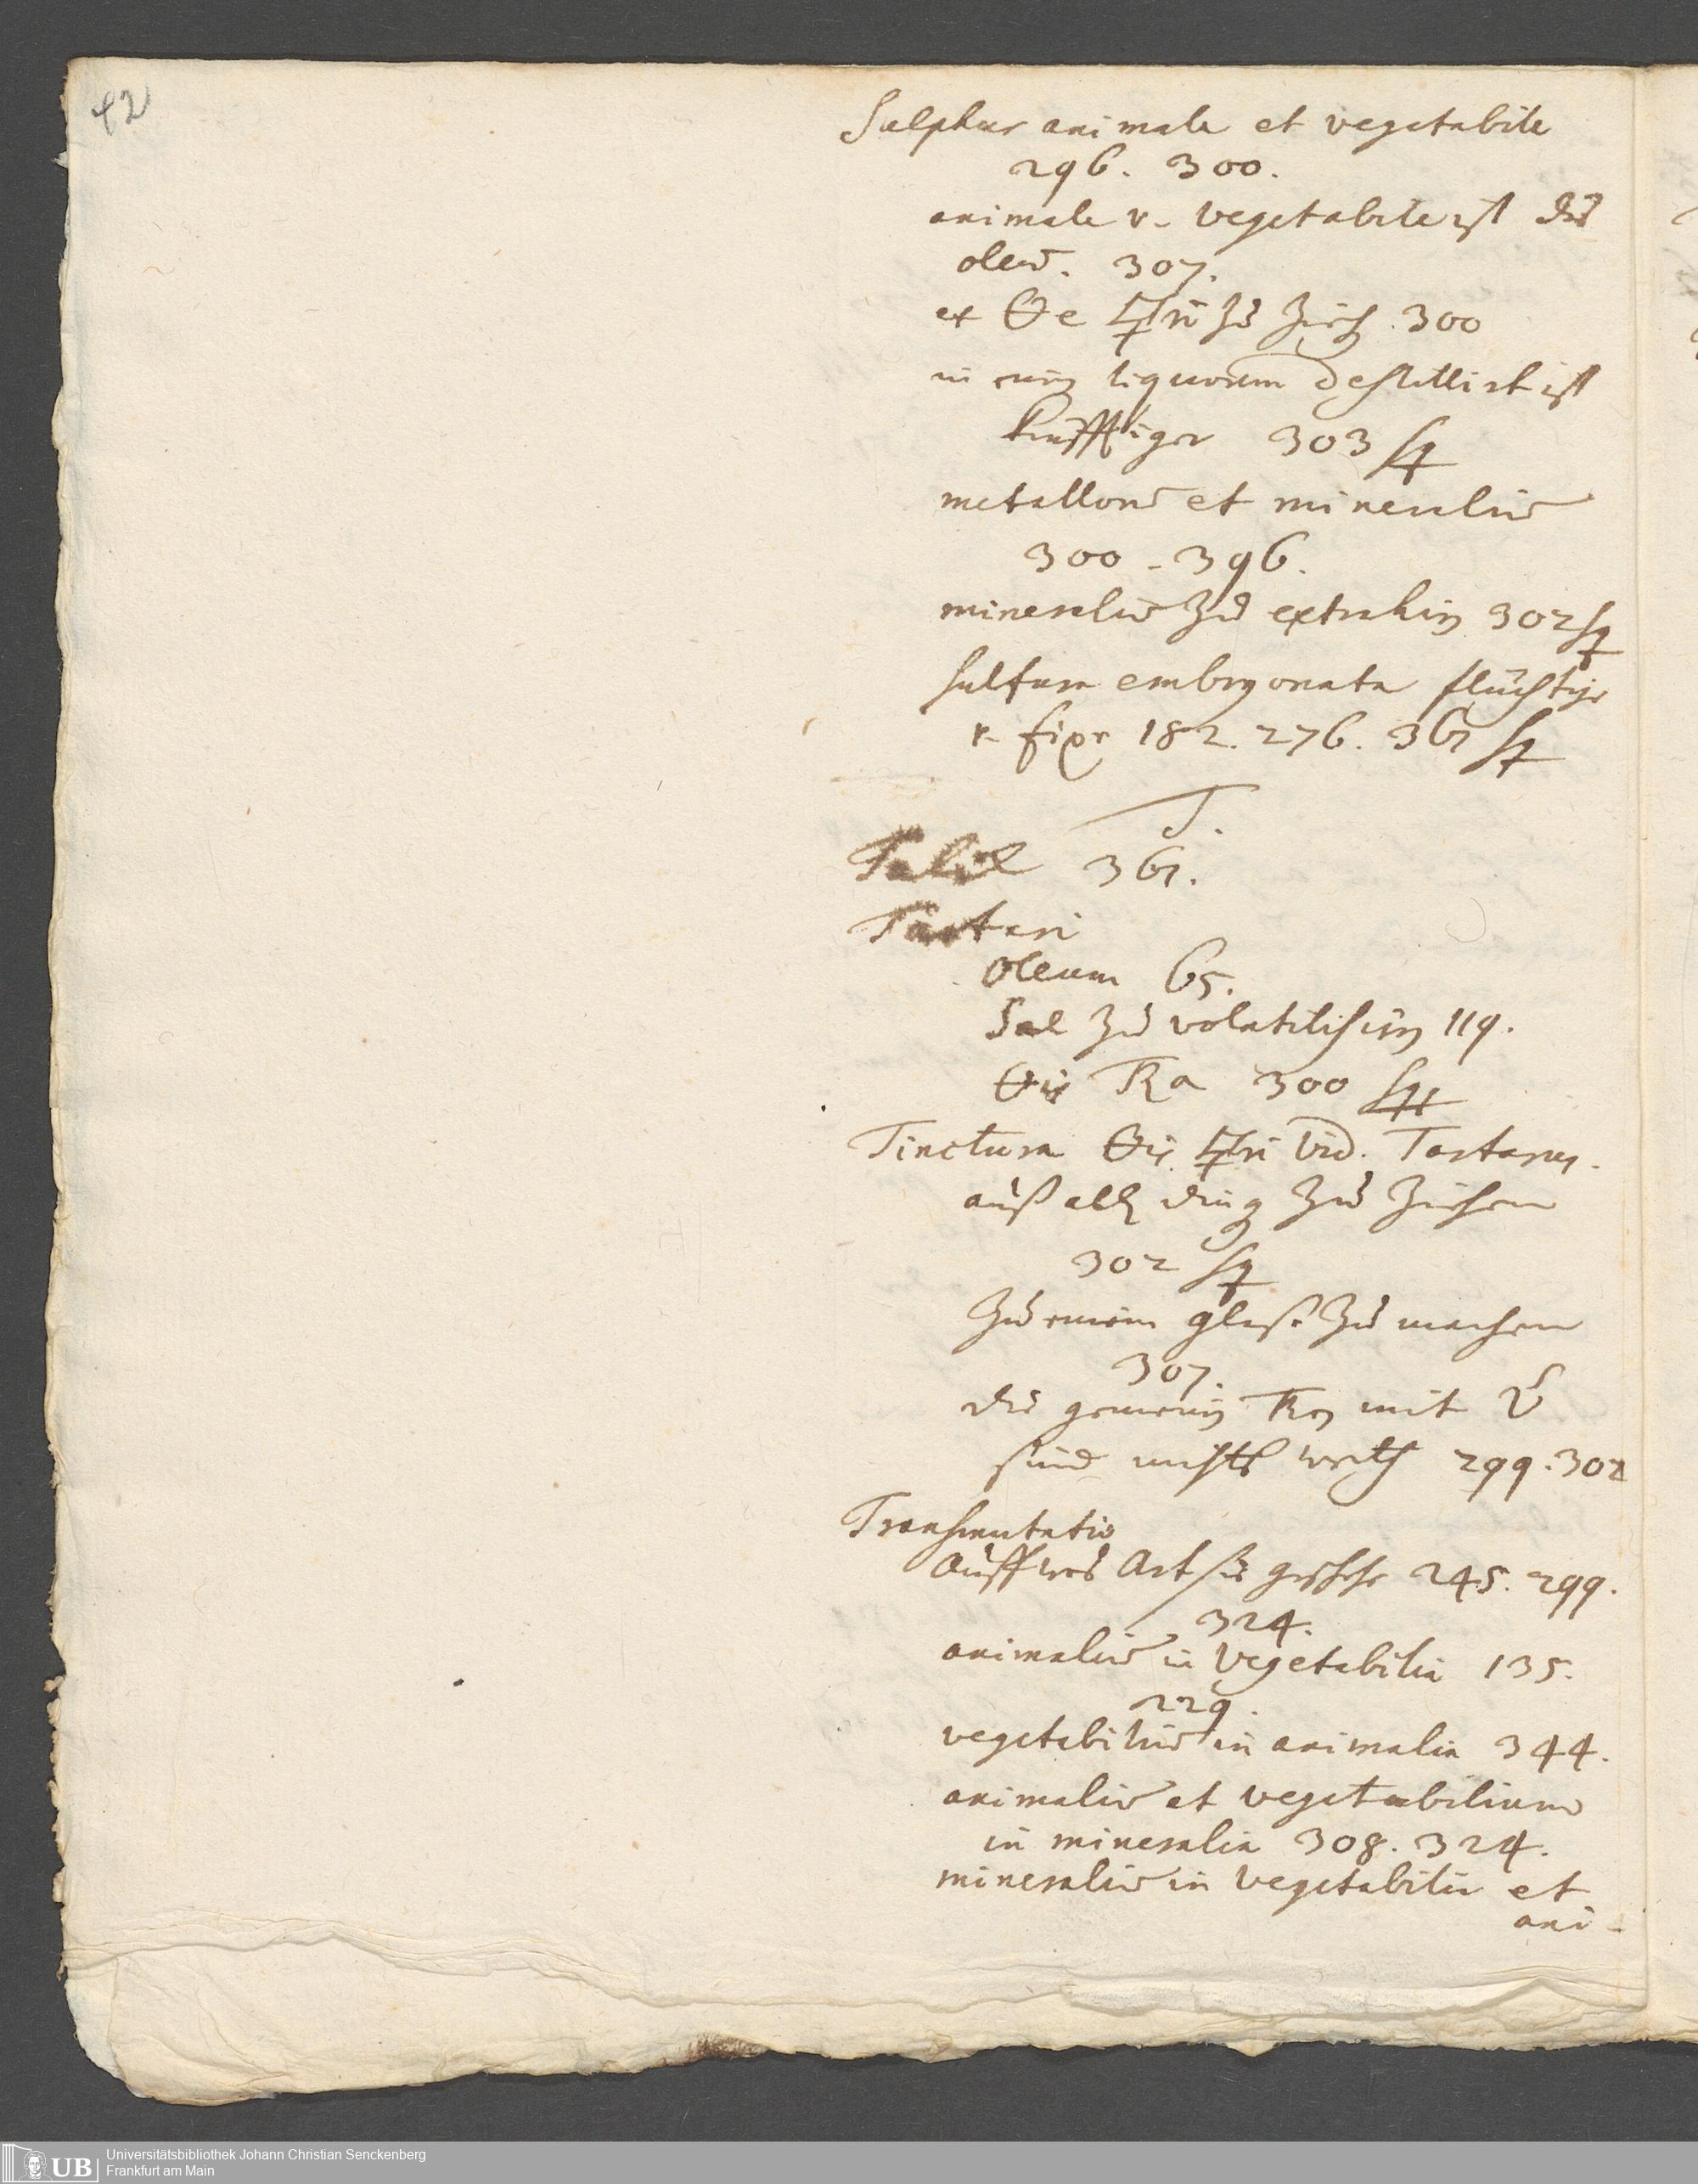 42
Sulphur animale et vegetabile
296. 300.
animale v. vegetabile ist das
oleū. 307.
ex 🜔e 🜿ri zu ziehen 300
in ein liquorem destillirt ist
kräfftiger 303 sq
metallorū et mineraliū
300 - 396.
mineraliū zu extrahirn 302 sq
sulfura embryonata flüchtige
v. fixe 182. 276. 361 sq
T.
361.
Tartari
Oleum 65.
Sal zu volatilisirn 119.
🜔is Tra 300 sqq
Tinctura 🜔is 🜿ri vid. Tartarus.
auß alln ding zu ziehen
302 sq
zu einem glaße zu machen
307.
die gemein Tren mit
sind nichts werth 299. 302
Transmutatio
Auff was Art sie geschehe 245. 299.
324.
animaliū in vegetabilia 135.
229.
vegetabiliū in animalia 344.
animaliū et vegetabilium
in mineralia 308. 324.
mineraliū in vegetabilia et
ani-
UB
Universitätsbibliothek Johann Christian Senckenberg
Frankfurt am Main